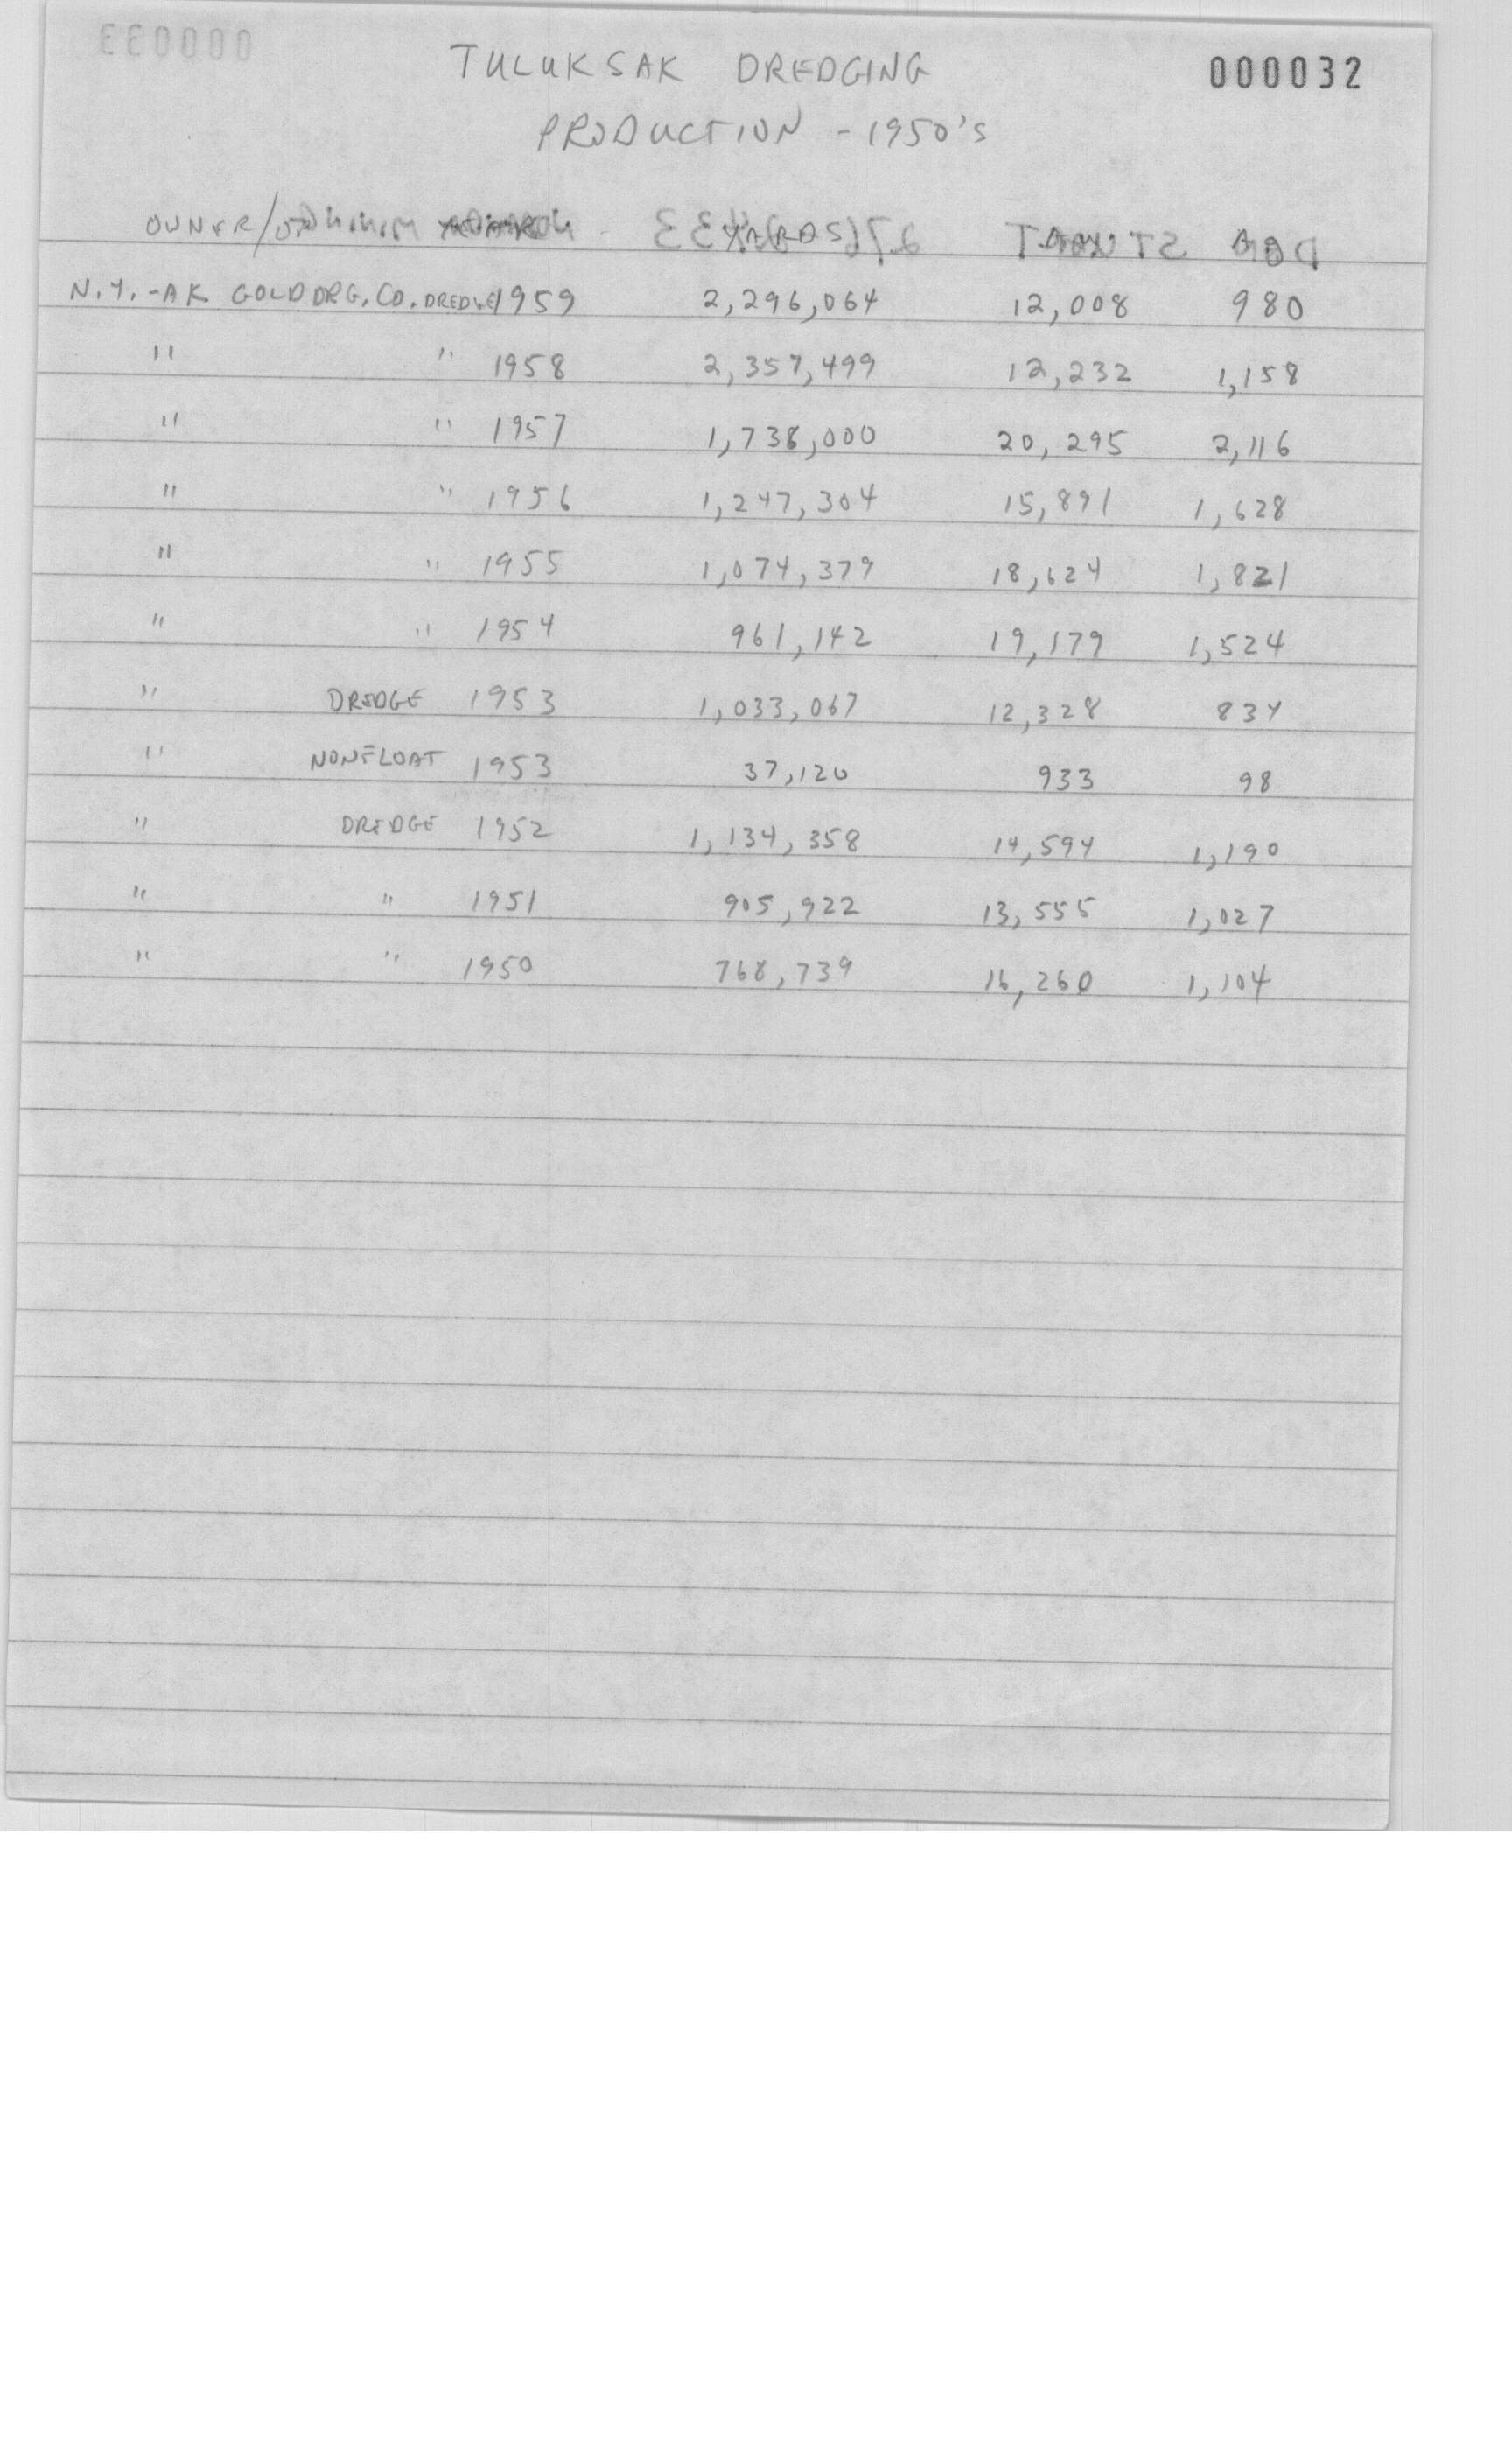 000032
TULUKSAK DREDGING
PRODUCTION - 1950's
OWNER/OP YEAR YARDS Au Ag
N.Y.-AK GOLD DRG. CO. DREDGE 1959 2,296,064 12,008 980
" " 1958 2,357,499 12,232 1,158
" " 1957 1,738,000 20,295 2,116
" " 1956 1,247,304 15,891 1,628
" " 1955 1,074,379 18,624 1,821
" " 1954 961,142 19,179 1,524
" DREDGE 1953 1,033,067 12,328 834
" NONFLOAT 1953 37,120 933 98
" DREDGE 1952 1,134,358 14,594 1,190
" " 1951 905,922 13,555 1,027
" " 1950 768,739 16,260 1,104